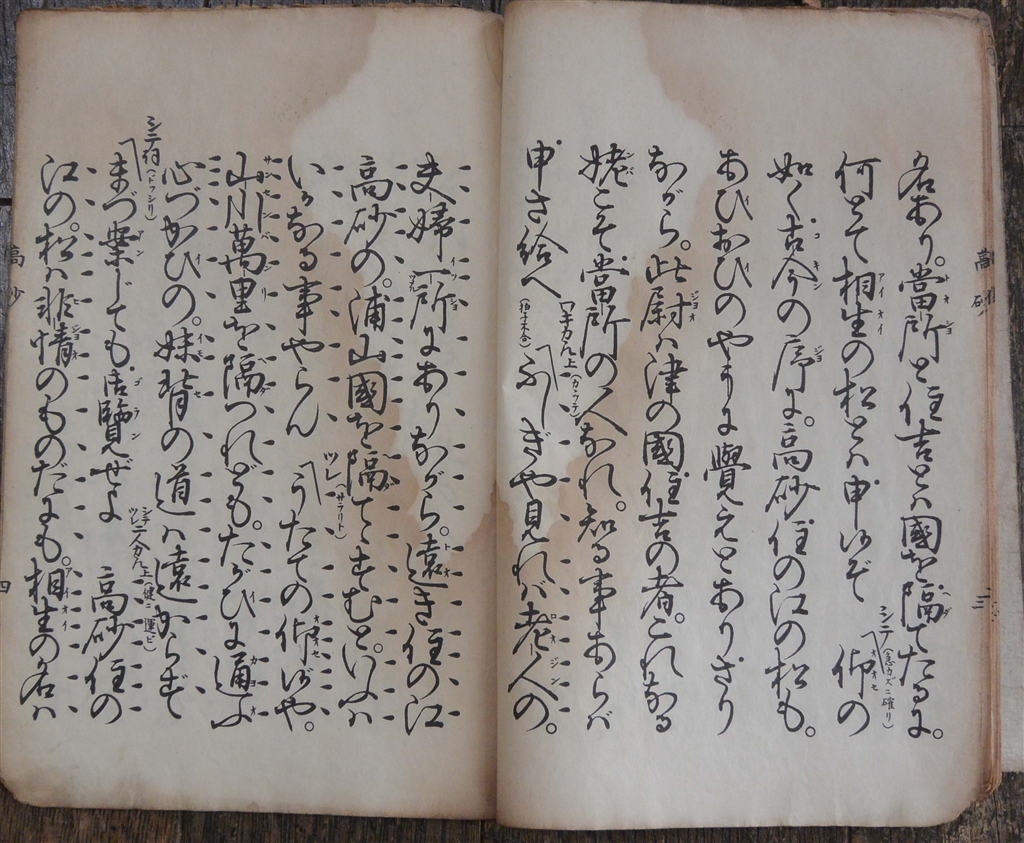 名あり。當所と住吉とハ國を隔てたるに。
何とて相生の松とハ申候ぞ シテ(急カズニ確リ)仰の
如く古今の序に。高砂住の江の松も。
あひおひのやうに覺えとありさり
ながら。此尉ハ津の國住吉の者。これなる
姥こそ當所の人なれ。知る事あらバ
申さ給へ(拍子不合) ワキカヽル上(カヽッテ)ふしぎや見れバ老人の。
夫婦一所にありながら。遠き住の江
高砂の。浦山國を隔てすむと。いふハ
いかなる事やらん ツレ(サラリト)うたての仰候や。
山川萬里を隔つれども。たがひに通ふ
心づかひの。妹背の道ハ遠からず
シテ詞(ドッシリ)まづ案じても御覽ぜよ シテツレ二人カヽル上(健ニ運ビ)高砂住の
江の。松ハ非情のものだにも。相生の名ハ
高砂
三
高砂
四